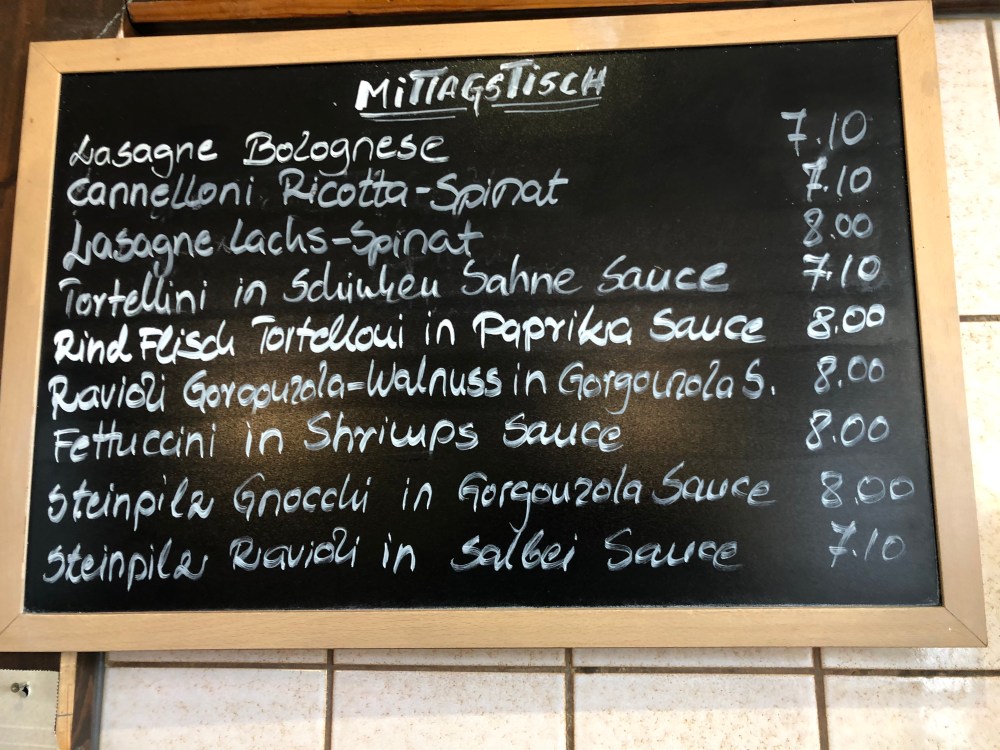 MiTTAGSTiSCH
Lasagne Bolognese 7.10
Cannelloni Ricotta-Spinat 7.10
Lasagne Lachs-Spinat 8.00
Tortellini in Schinken Sahne Sauce 7.10
Rind Flisch Tortelloni in Paprika Sauce 8.00
Ravioli Gorgonzola-Walnuss in Gorgonzola S. 8.00
Fettuccini in Shrimps Sauce 8.00
Steinpilz Gnocchi in Gorgonzola Sauce 8.00
Steinpilz Ravioli in Salbei Sauce 7.10